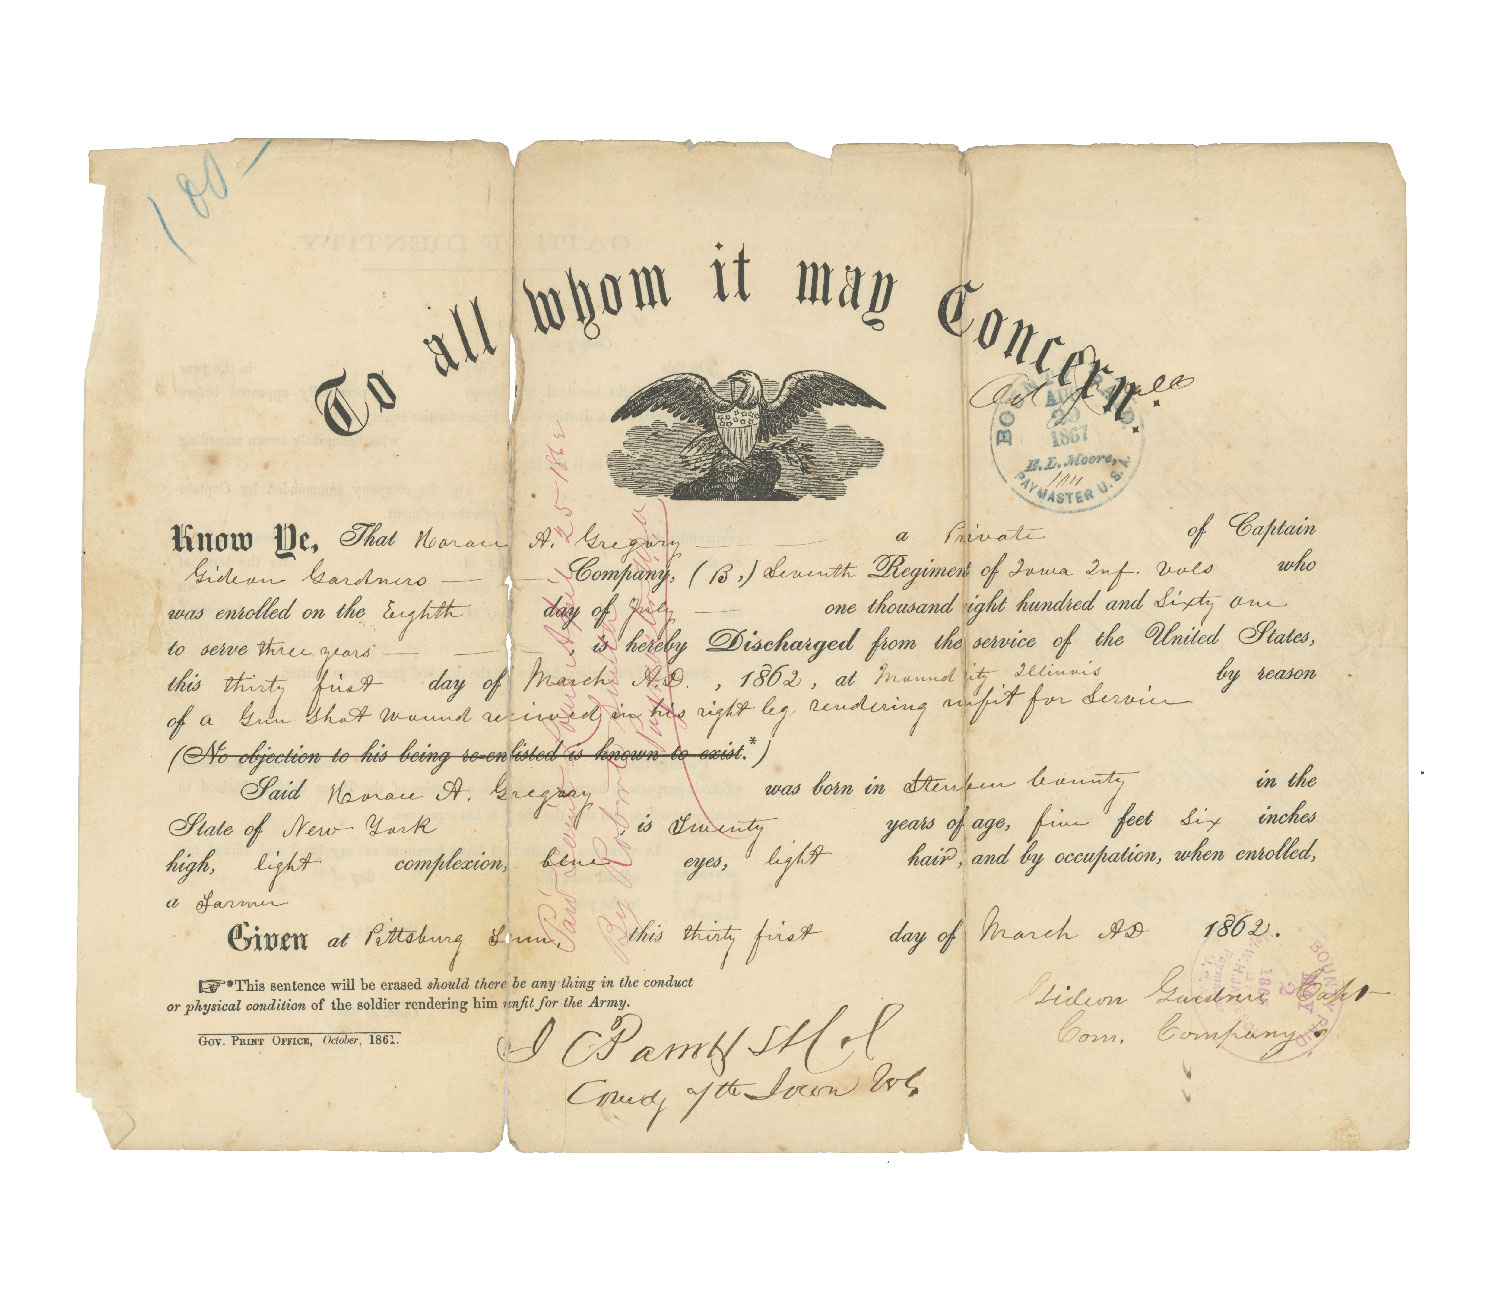 100-
To all whom it may Concern.
BOUNTY PAID
AUG
1867
B. L. Moore,
PAYMASTER U. S. A.
Know Ye, That Horace A. Gregory a Private of Captain
Gideon Gardners Company, (B,) Seventh Regiment of Iowa Inf. Vols who
was enrolled on the Eighth day of July one thousand eight hundred and Sixty one
to serve three years, is hereby Discharged from the service of the United States,
this thirty first day of March A.D., 1862, at Mound City Illinois by reason
of a Gun Shot wound recieved in his right leg rendering unfit for Service
(No objection to his being re-enlisted is known to exist.*)
Said Horace A. Gregory was born in Steuben County in the
State of New York is Twenty years of age, five feet Six inches
high, light complexion, blue eyes, light hair, and by occupation, when enrolled,
a Farmer
Given at Pittsburg Tenn, this thirty first day of March AD 1862.
☞*This sentence will be erased should there be any thing in the conduct
or physical condition of the soldier rendering him unfit for the Army.
Gov. Print Office, October, 1861.
Gideon Gardner Capt
Com. Company
Comdg 7th Iowa Vols
Paid Louis April 25 1862
By Robert Smith
Paymaster USA
BOUNTY PAID
MAY
2